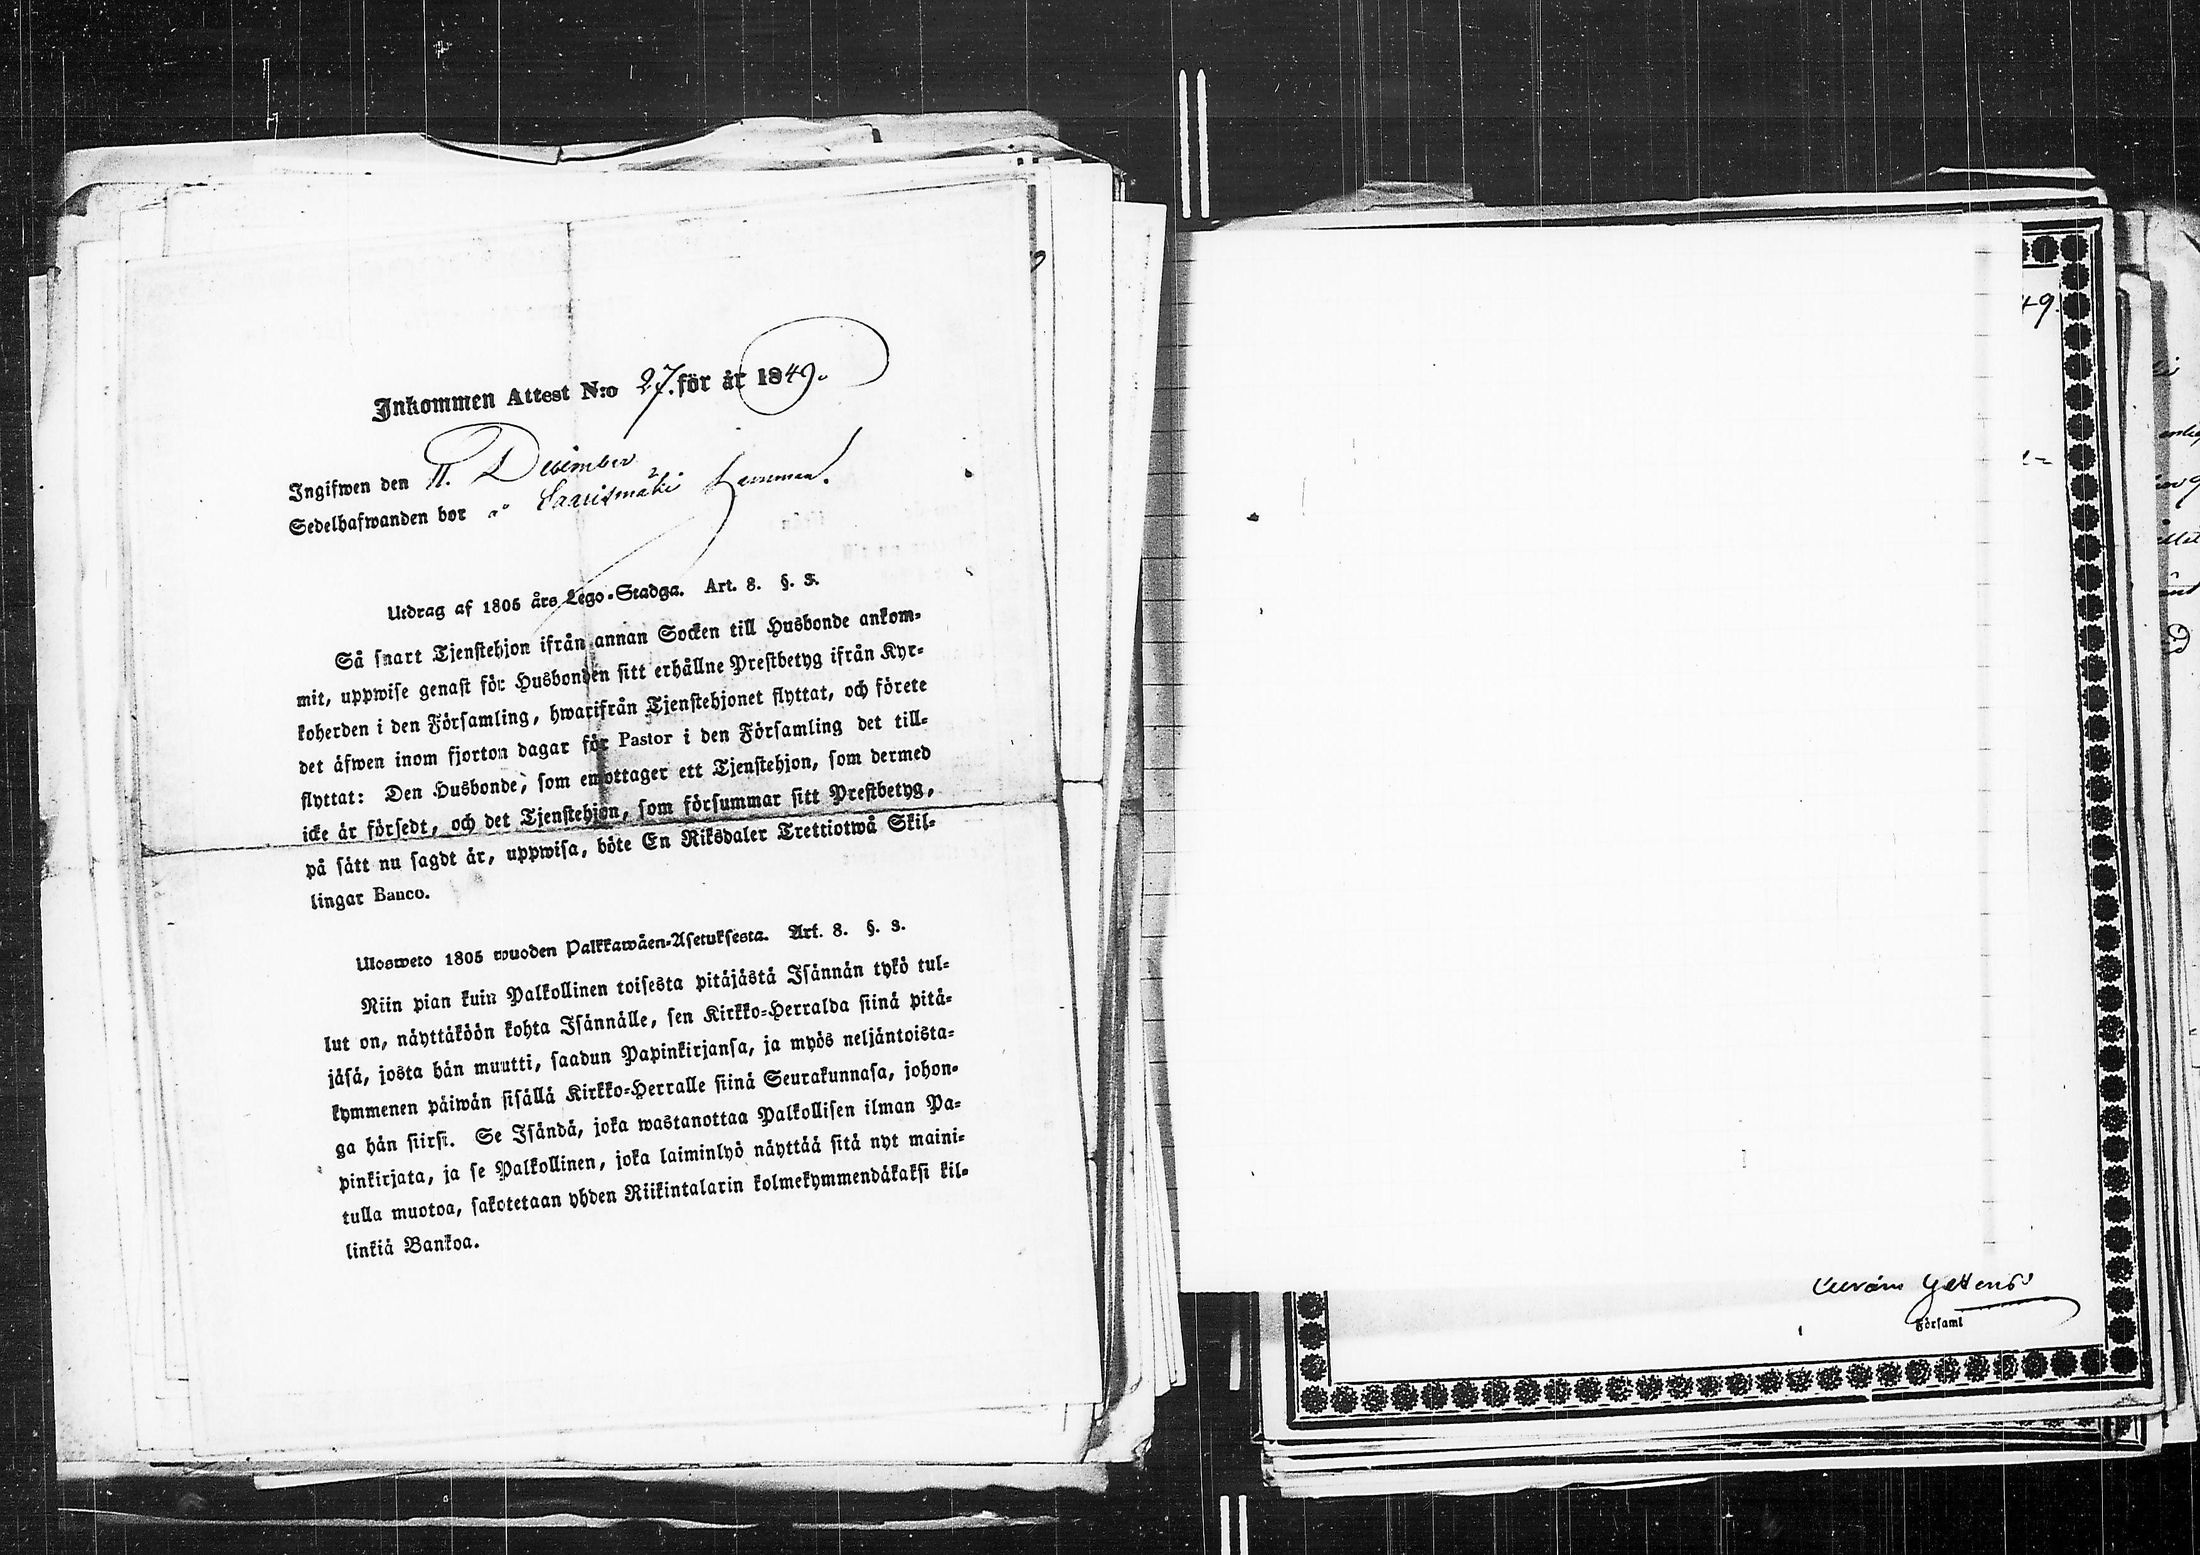 Inkommen Attest N:o 27. för år 1849.
Ingifwen den 11. December
Sedelhafwanden bor å Saarismäki hemman.
Utdrag af 1805 års Lego-Stadga. Art. 8. §. 3.
Så snart Tjenstehjon ifrån annan Socken till Husbonde ankom-
mit, uppwise genast för Husbonden sitt erhållne Prestbetyg ifrån Kyr-
koherden i den Församling, hwarifrån Tjenstehjonet flyttat, och förete
det äfwen inom fjorton dagar för Pastor i den Församling det till-
flyttat: Den Husbonde, som emottager ett Tjenstehjon, som dermed
icke är försedt, och det Tjenstehjon, som försummar sitt Prestbetyg,
på sätt nu sagdt är, uppwisa, böte En Riksdaler Trettiotwå Skil-
lingar Banco.
Ulosweto 1805 wuoden Palkkawäen-Asetuksesta. Art. 8. §. 3.
Niin pian kuin Palkollinen toisesta pitäjästä Isännän tykö tul-
lut on, näyttäköön kohta Isännälle, sen Kirkko-Herralda siinä pitä-
jäsä, josta hän muutti, saadun Papinkirjansa, ja myös neljäntoista-
kymmenen päiwän sisällä Kirkko-Herralle siinä Seurakunnasa, johon-
ga hän siirsi. Se Isändä, joka wastanottaa Palkollisen ilman Pa-
pinkirjata, ja se Palkollinen, joka laiminlyö näyttää sitä nyt maini-
tulla muotoa, sakotetaan yhden Riikintalarin kolmekymmendäkaksi kil-
linkiä Bankoa.
49.
Församl